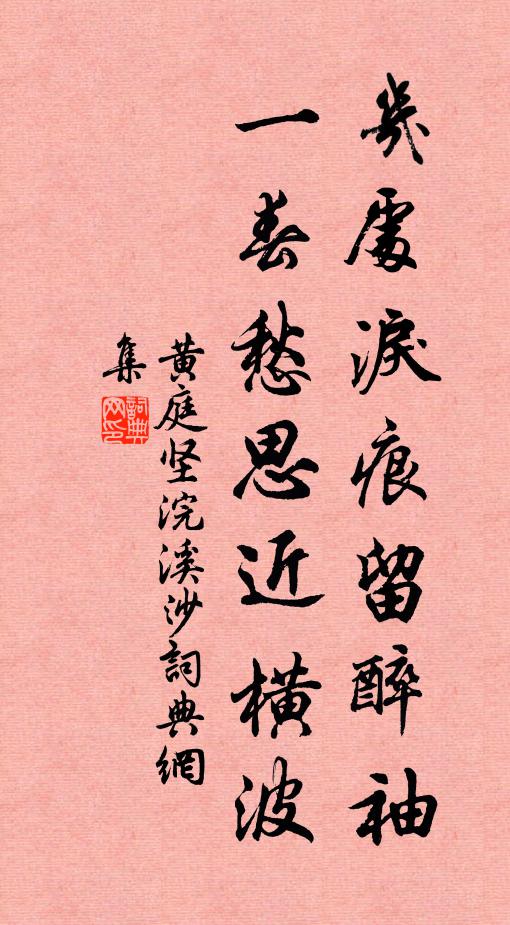 幾處淚痕留醉袖
一春愁思近橫波
黄庭坚浣溪沙詞典網
集
詞典網印